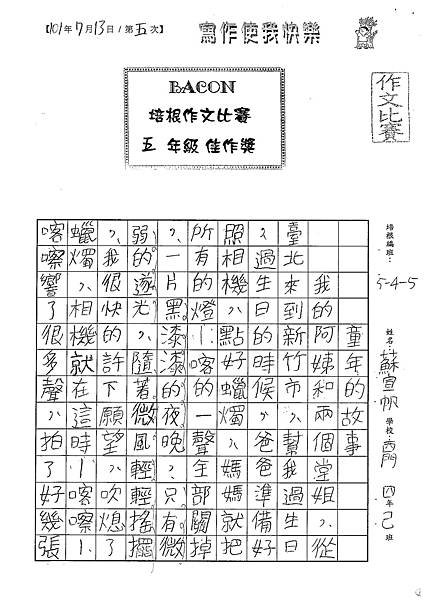 【101年7月13日/第五次】
寫作使我快樂
BACON
培根作文比賽
五 年級 佳作獎
作文比賽
培根編班：5-4-5
姓名：蘇宣帆 學校：西門 四年己班
童年的故事
我的阿姨和兩個堂姐，從
臺北來到新竹市，幫我過生日
，過生日的時候，爸爸準備好
照相機，點好蠟燭，媽媽就把
所有的燈！喀的一聲全部關掉
，一片黑漆漆的夜晚，只有微
弱的遂光，隨著微風輕輕搖擺
，我很快的許下願望，吹熄了
蠟燭，相機就在這時！喀嚓！
喀嚓響了很多聲，拍了好幾張